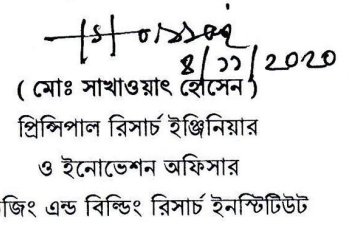 ৪/১১/২০২০
( মোঃ সাখাওয়াৎ হোসেন )
প্রিন্সিপাল রিসার্চ ইঞ্জিনিয়ার
ও ইনোভেশন অফিসার
জিং এন্ড বিল্ডিং রিসার্চ ইনস্টিটিউট